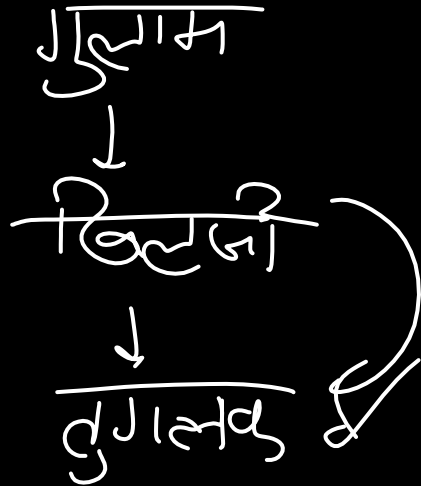 गुलाम
खिलजी
तुगलक